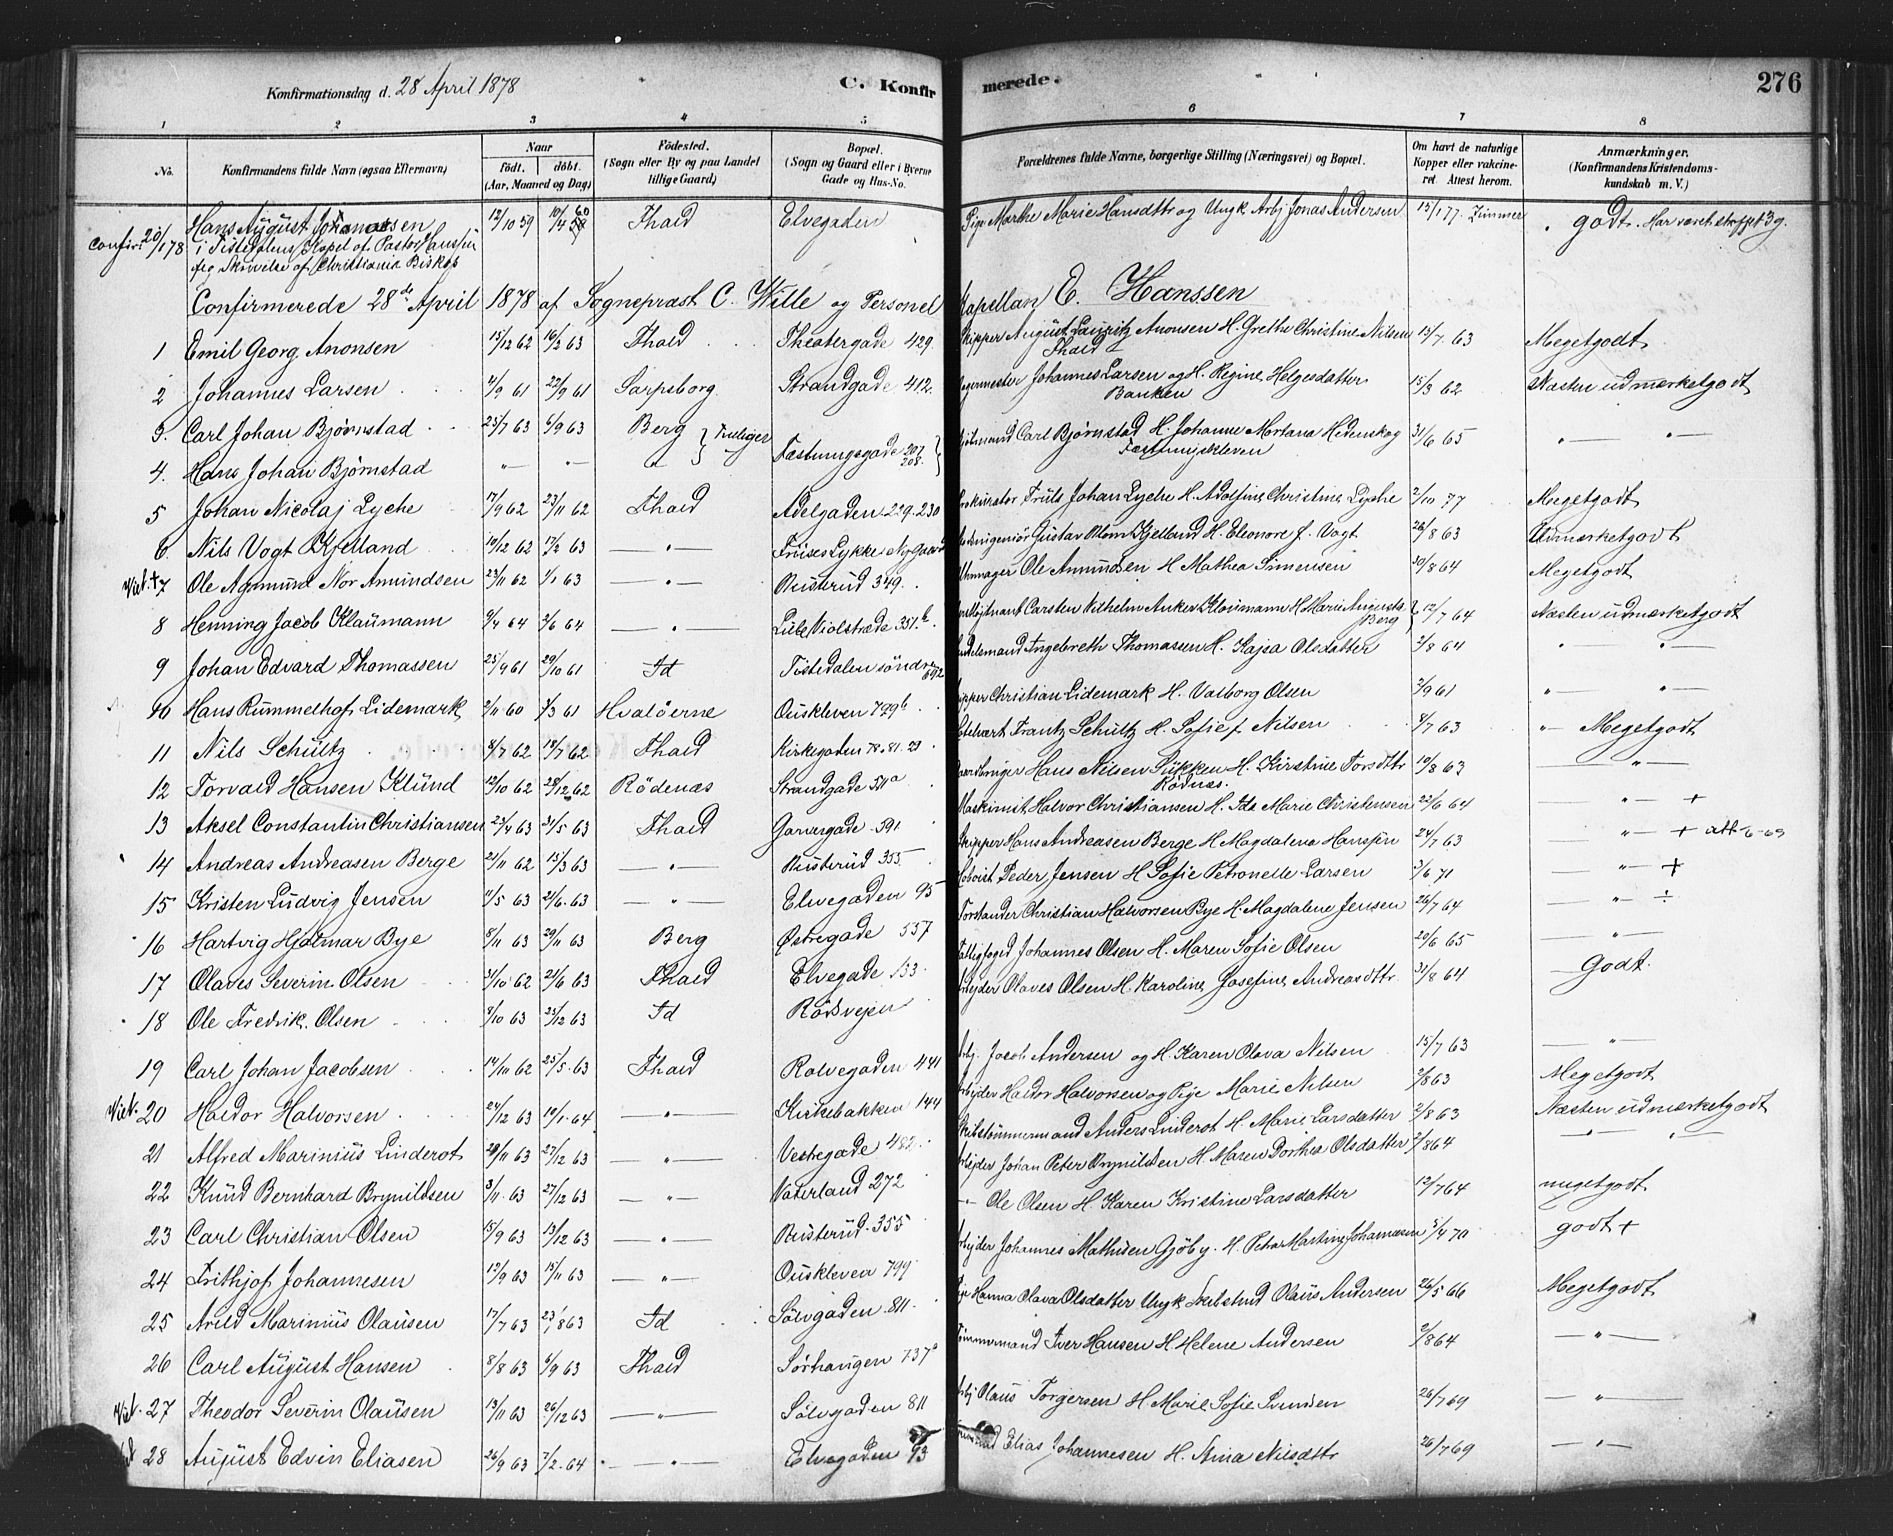 Konfirmationsdag d. 28 April 1878
C. Konfir
merede.
276
1 2 3 4 5 6 7 8
No.
Konfirmandens fulde Navn (ogsaa Efternavn)
Naar
født. døbt.
(Aar, Maaned og Dag)
Fødested.
(Sogn eller By og paa Landet
tillige Gaard)
Bopæl.
(Sogn og Gaard eller i Byerne
Gade og Hus-No.
Forældrenes fulde Navne, borgerlige Stilling (Næringsvei) og Bopæl.
Om havt de naturlige
Kopper eller vakcine-
ret. Attest herom.
Anmærkninger.
(Konfirmandens Kristendoms-
kundskab m. V.)
Hans August 12/10 59 Fhald Elvegaden Pige Marthe Marie Hansdttr og Ungk Arbj Jonas Andersen 15/1 77. Zimmer godt.
confir. 20/1 78 i Tistedalens Kapel af Pastor Hansen
Skrivelse af Christiania Biskop
Confirmerede 28de April 1878 af Sognepræst C. Wille og Personel Kapellan E. Hanssen
1 Emil Georg Anonsen 15/12 62 16/2 63 Fhald Theatergade 429. Skipper August Lauritz Anonsen H. Grethe Christine Nilsen 13/7 63 Megetgodt
Fhald
2 Johannes Larsen 2/9 61 22/9 61 Sarpsborg Strandgade 412. Johannes Larsen og H. Regine Helgesdatter 15/3 62 Næsten udmærketgodt
Banken
3. Carl Johan Bjørnstad 25/7 63 6/9 63 Berg Carl Bjørnstad H. Johanne Mortana Hedenskog 31/6 65 " "
4. Hans Johan Bjørnstad " " " Fæstningsgade 207 208.
5 Johan Nicolaj Lyche 17/9 62 23/11 62 Fhald Adelgaden 229.230 Prokurator Truls Johan Lyche H. Adolfine Christine Lyche 2/10 77 Megetgodt
6 Nils Vogt Kjelland 10/12 62 17/2 63 " Friises Lykke Nygaard Gustav Blom Kjelland H. Eleonore f. Vogt 26/8 63 Udmærketgodt
Viet. + 7 Ole Agmund Nor Amundsen 23/11 62 1/1 63 " Busterud 349. Uhrmager Ole Amundsen H Mathea Simensen 30/8 64 Megetgodt
8 Henning Jacob Klaumann 9/4 64 3/6 64 " Lille Violstræde 351.b. Carsten Vilhelm Anker Klaumann H. Marie Augusta Berg 12/7 64 Næsten udmærketgodt
9 Johan Edvard Thomassen 25/9 61 29/10 61 Id Tistedalen søndre 692 Ingebreth Thomassen H. Kajsa Olsdatter 3/8 64 " "
10 Hans Rummelhof Lidemark 2/11 60 7/3 61 Hvaløerne Ouskleven 799b. Skipper Christian Lidemark H. Valborg Olsen 2/9 61 " "
11 Nils Schultz 8/7 62 19/7 62 Fhald Kirkegaden 78.81.23 Frantz Schultz H. Sofie f. Nilsen 8/7 63 " Megetgodt
12 Torvald Hansen Klund 12/10 62 28/12 62 Rödenæs Strandgade 511a Hans Nilsen H. Kirstine Torsdttr 10/8 63 "
Rødnæs.
13 Aksel Constantin Christiansen 23/4 63 31/5 63 Fhald Garvergade 591 Maskinist Halvor Christiansen H. Ida Marie Christensen 22/6 64 " +
14 Andreas Andreasen Berge 21/11 62 15/3 63 " Busterud 355 Skipper Hans Andreasen Berge H Magdalena Hanssen 24/7 63 " +
15 Kristen Ludvig Jensen 11/5 63 21/6 63 " Elvegaden 95 Peder Jensen H Sofie Petronelle Larsen 3/6 71 " +
16 Hartvig Hjalmar Bye 8/11 63 29/11 63 Berg Østregade 557 Forstander Christian Halvorsen Bye H. Magdalene Jensen 26/7 64 " ÷
17 Olaves Severin Olsen 31/10 62 21/6 63 Fhald Elvegade 133. Fattigfoged Johannes Olsen H. Maren Sofie Olsen 29/6 65 "
18 Ole Fredrik. Olsen 8/10 63 25/12 63 Id Rödsvejen Arbejder Olaves Olsen H. Karoline Josefine Andreasdttr 31/8 64 Godt.
19 Carl Johan Jacobsen 14/10 62 25/5 63 Fhald Rolvegaden 441 Arbj. Jacob Andersen og H. Karen Olava Nilsen 15/7 63 "
Viet. 20 Haldor Halvorsen 24/12 63 19/1 64 " Kirkebakken 144 Arbejder Haldor Halvorsen og Pige Marie Nilsen 3/8 63 Megetgodt
21 Alfred Marinius Linderot 29/11 63 27/12 63 " Vestregade 482. Skibstömmermand Anders Linderot H. Marie Larsdatter 2/8 63 Næsten udmærketgodt
22 Knud Bernhard Brynildsen 3/11 63 27/12 63 " Vaterland 272 Arbejder Johan Peter Brynildsen H Maren Dorthea Olsdatter 2/8 64 " "
23 Carl Christian Olsen 15/9 63 13/12 63 " Busterud 355 " Ole Olsen H. Karen Kristine Larsdatter 12/7 64 megetgodt
24 Frithjof Johannesen 12/9 63 15/11 63 " Ouskleven 799 Arbejder Johannes Mathisen Gjöby. H. Petra Martine Johannesen 5/4 70 godt +
25 Arild Marinius Olausen 17/7 63 23/8 63 Id Sølvgaden 811. Pige Hanna Olava Olsdatter Ungk Skibstmd Olaus Andersen 26/5 66 Megetgodt
26 Carl August Hansen 8/8 63 6/9 63 Fhald Sørhaugen 737a Tömmermand Iver Hansen H Helene Andersen 2/8 64 "
Viet. 27 Theodor Severin Olausen 13/11 63 26/12 63 " Sølvgaden 811 Arbj Olaus Torgersen H. Marie Sofie Svendsen 26/7 69 "
28 August Edvin Eliasen 26/9 63 7/2 64 " Elvegaden 93 Elias Johannesen H. Anna Nilsdttr 26/7 69 "